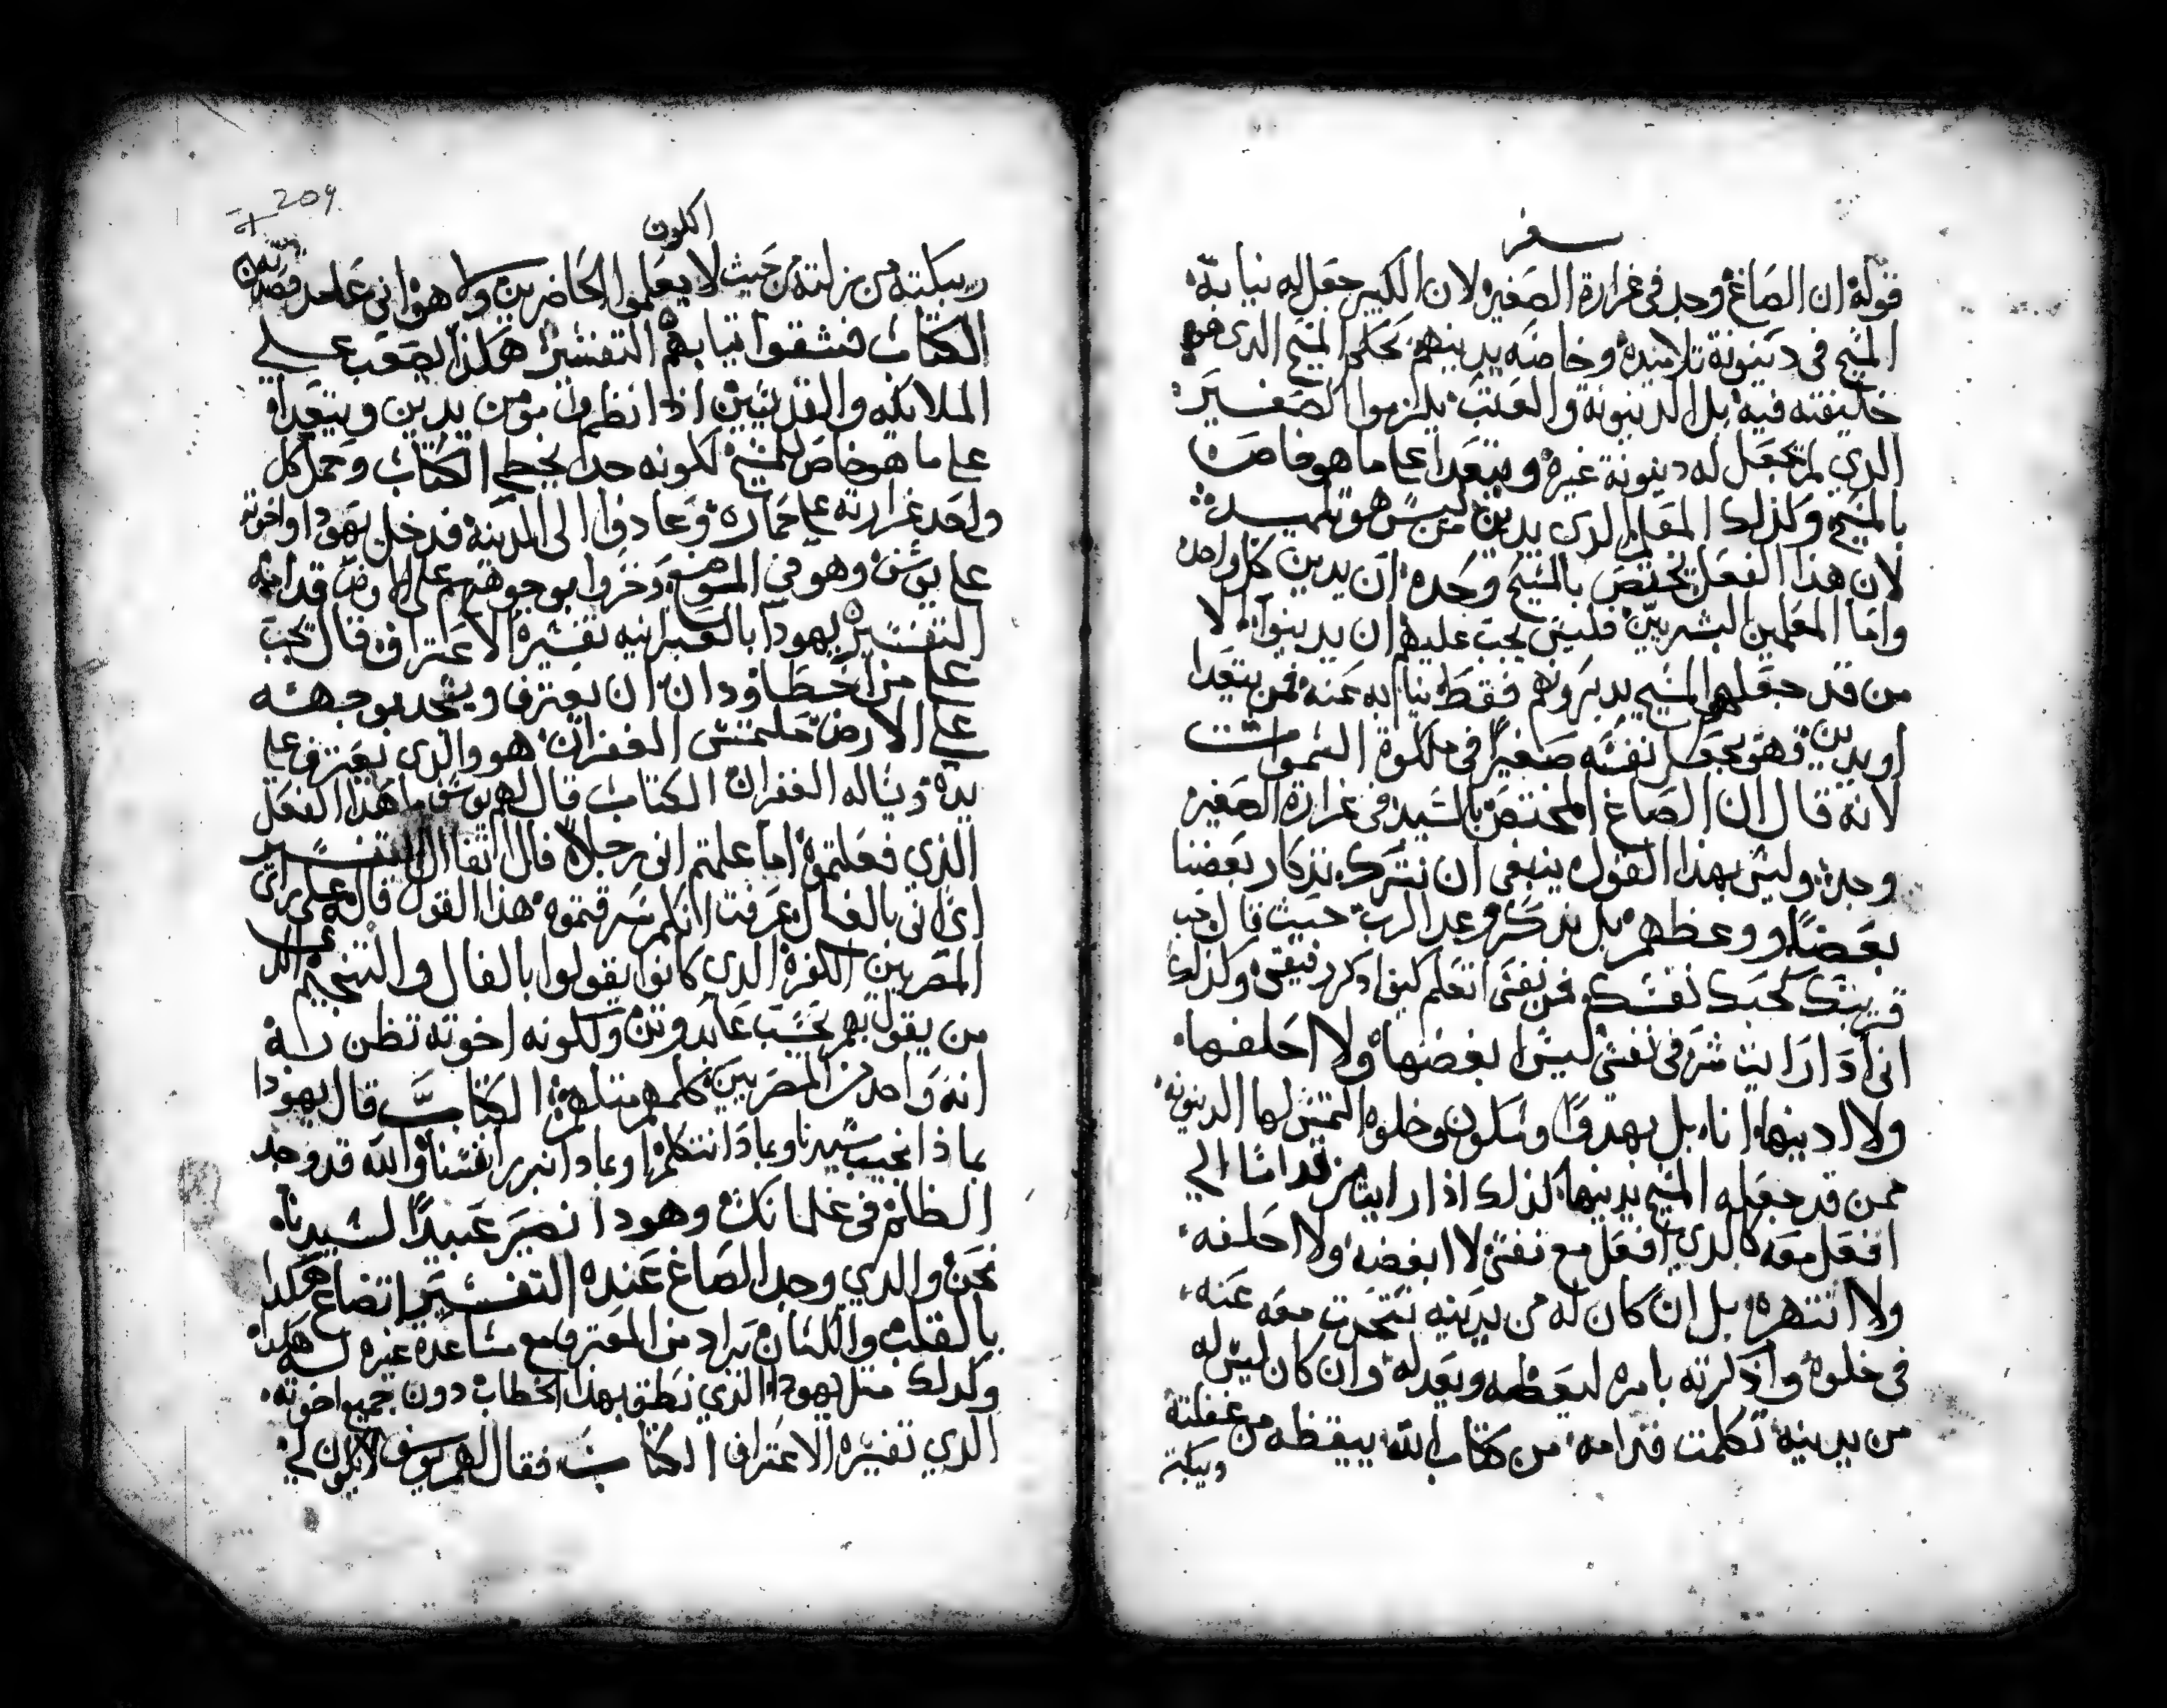 سفر
قوله ان الصاغ وجد فى غرارة الصغير لان الكبير جعل له نيابة
المسيح فى دينونة تلاميده وخاصته يدينهم بحكم المسيح الدى هو
خليفته فيه بل الدينونة والعتب يلزموا الصغير
الدي لم يجعل له دينونة غيره ويتعدا على ما هو خاص
بالمسيح وكذلك المعلم الدى يدين من ليس هو تلميده
لان هذا الفعل يختص بالمسيح وحده ان يدين كل واحد
واما المعلمين البشريين فليس يجب عليهم ان يدينوا الا
من قد جعلهم المسيح يدبروهم فقط نيابه عنه فمن يتعدا
او يدين فهو يجعل نفسه صغيرا فى ملكوة السموات
لانه قال ان الصاغ المختص بالسيد فى غرارة الصغير
وجد وليس بهذا القول ينبغى ان نترك تذكار بعضنا
بعضا ووعظهم بل نذكر وعد الرب حيث قال حب
قريبك كحبك نفسك فمن نفسى اتعلم كيف ادكر رفيقى وكذلك
انى ادا رايت شر فى نفسى ليس ابغضها ولا احلفها
ولا ادينها انا بل بهدوا وسكون وخلوه التمس لها الدينونه
ممن قد جعله المسيح يدينها لذلك اذا رايت من قدامنا الى
افعل معه كالدي افعل مع نفسى لا ابغضه ولا احلفه
ولا انتهره بل ان كان له من يدينه نتحدت معه عنه
فى خلوه واذكرته بامره ليعظه ويعدله وان كان ليس له
من يدينه تكلمت قدامه من كتاب الله ييقظه من غفلته
ويبكته
اكلون
209
ويبكته من زلته من حيث لا يعلموا الحاضرين ولا هو انى على قصدته
الكتاب فشقوا تيابهم التفسير هكذا يصعب على
الملايكه والقديسين اذا نظروا مومن يدين ويتعدا
على ما هو خاص للمسيح لكونه جدا يخطى الكتاب وحمل كل
واحد غرارته على حماره وعادوا الى المدينة فدخل يهودا واخوته
على يوسف وهو فى الموضع وخروا بوجوههم على الارض قدامه
التفسير يهودا بالعبرانيه تفسيره الاعتراف قال يجب
على من اخطا ودان ان يعترف ويسجد بوجهه
على الارض ملتمس الغفران هو والدى يعترف على
يده وينالله الغفران الكتاب قال لهم يوسف ما هذا الفعل
الذي فعلتموه اما علمتم انى رجلا فال اتفاال التفسير
اى انى بالفال عرفت انكم سرقتموه هذا القول قاله على راى
المصريين الكفرة الدى كانوا يقولوا بالفال والتنجيم
من يقول بهم بحسب عابد وتن ولكونه اخوته تظن به
انه واحد من المصريين كلمهم متلهم الكتاب قال يهودا
بماذا نجيب سيدنا وبمادا نتكلم وبمادا نبرر انفسنا والله قد وجد
الظلم فى غلمانك وهودا نصير عبيدا لسيدنا
نحن والدي وجد الصاغ عنده التفسير اتضاع هكدا
بالقلب واللسان يراد من المعترف مع مساعدة غيره له هكدا
وكدلك متل يهودا الذي نطق بهدا الخطاب دون جميع اخوته
الدي تفسيره الاعتراف الكتاب فقال لهم يوسف لا يكون لي